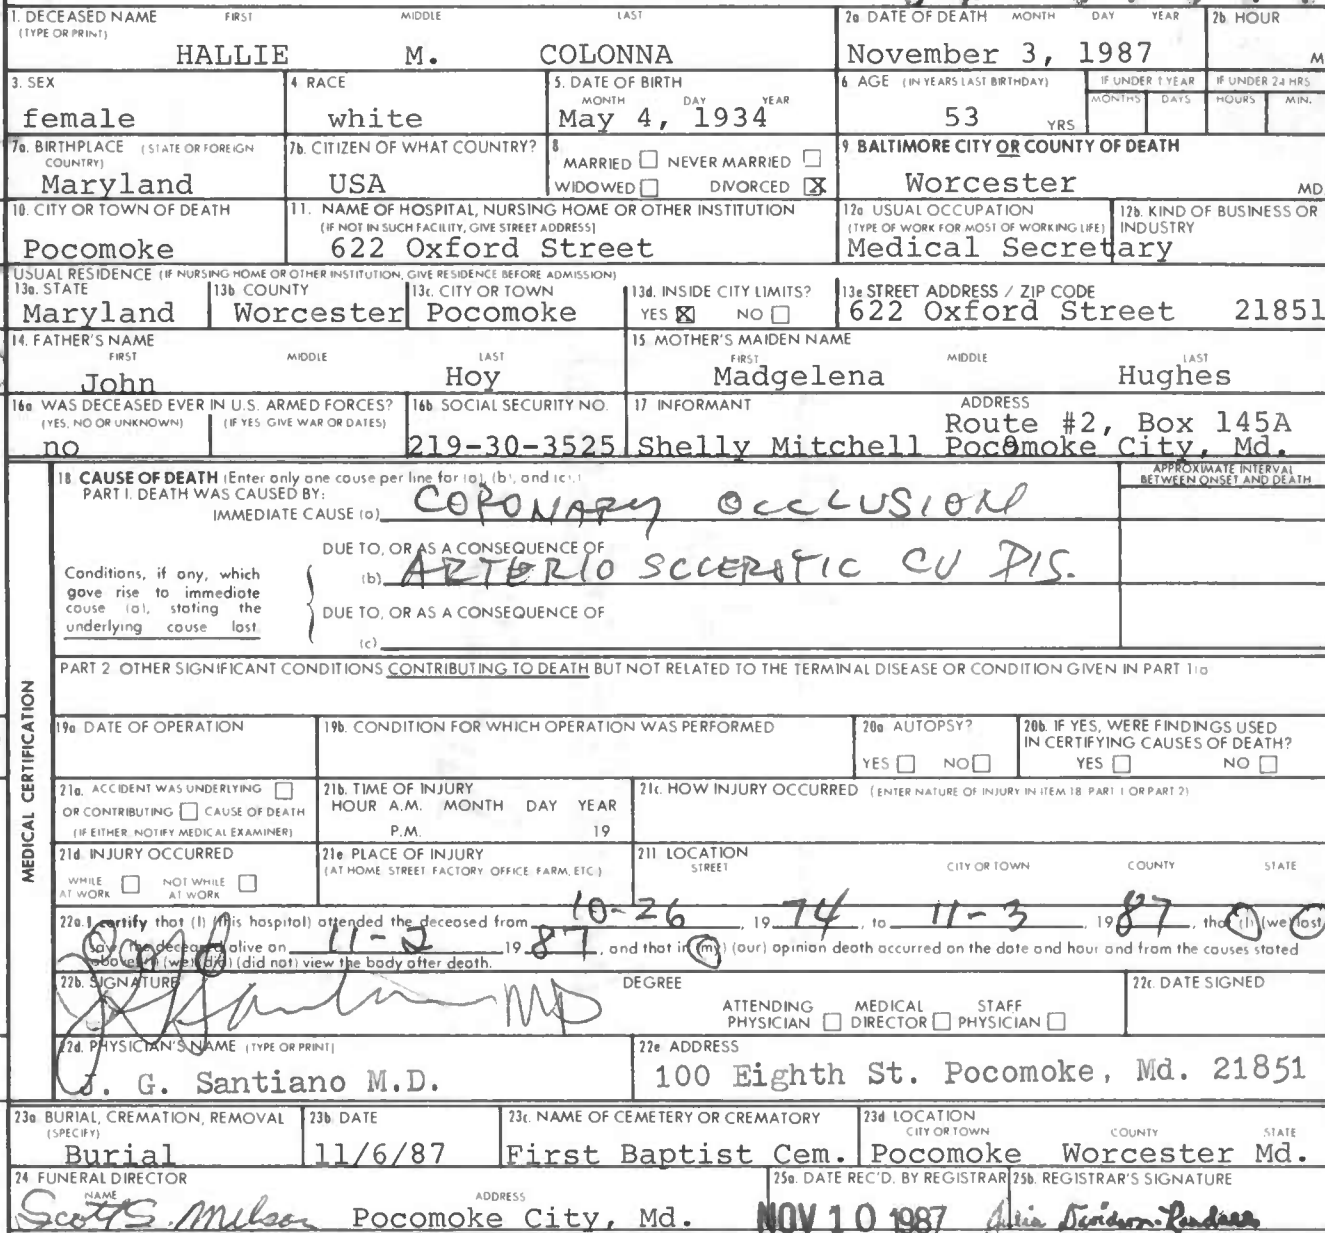 1. DECEASED NAME FIRST MIDDLE LAST
(TYPE OR PRINT)
HALLIE M. COLONNA
2a DATE OF DEATH MONTH DAY YEAR
November 3, 1987
2b. HOUR
M
3. SEX
female
4 RACE
white
5. DATE OF BIRTH
MONTH DAY YEAR
May 4, 1934
6 AGE (IN YEARS LAST BIRTHDAY)
53 YRS
IF UNDER 1 YEAR
MONTHS DAYS
IF UNDER 24 HRS
HOURS MIN.
7a. BIRTHPLACE (STATE OR FOREIGN
COUNTRY)
Maryland
7b. CITIZEN OF WHAT COUNTRY?
USA
8
MARRIED ☐ NEVER MARRIED ☐
WIDOWED ☐ DIVORCED ☒
9 BALTIMORE CITY OR COUNTY OF DEATH
Worcester MD.
10. CITY OR TOWN OF DEATH
Pocomoke
11. NAME OF HOSPITAL, NURSING HOME OR OTHER INSTITUTION
(IF NOT IN SUCH FACILITY, GIVE STREET ADDRESS)
622 Oxford Street
12a USUAL OCCUPATION
(TYPE OF WORK FOR MOST OF WORKING LIFE)
Medical Secretary
12b. KIND OF BUSINESS OR
INDUSTRY
USUAL RESIDENCE (IF NURSING HOME OR OTHER INSTITUTION, GIVE RESIDENCE BEFORE ADMISSION)
13a. STATE
Maryland
13b COUNTY
Worcester
13c. CITY OR TOWN
Pocomoke
13d. INSIDE CITY LIMITS?
YES ☒ NO ☐
13e STREET ADDRESS / ZIP CODE
622 Oxford Street 21851
14. FATHER'S NAME
FIRST MIDDLE LAST
John Hoy
15 MOTHER'S MAIDEN NAME
FIRST MIDDLE LAST
Madgelena Hughes
16a WAS DECEASED EVER IN U.S. ARMED FORCES?
(YES, NO OR UNKNOWN) (IF YES GIVE WAR OR DATES)
no
16b SOCIAL SECURITY NO.
219-30-3525
17 INFORMANT ADDRESS
Route #2, Box 145A
Shelly Mitchell Pocomoke City, Md.
18 CAUSE OF DEATH (Enter only one cause per line for (a), (b), and (c).)
APPROXIMATE INTERVAL
BETWEEN ONSET AND DEATH
PART I. DEATH WAS CAUSED BY:
IMMEDIATE CAUSE (a) CORONARY OCCLUSION
DUE TO, OR AS A CONSEQUENCE OF
(b) ARTERIO SCCEROTIC CV DIS.
Conditions, if any, which
gave rise to immediate
cause (a), stating the
underlying cause last
DUE TO, OR AS A CONSEQUENCE OF
(c)
PART 2 OTHER SIGNIFICANT CONDITIONS CONTRIBUTING TO DEATH BUT NOT RELATED TO THE TERMINAL DISEASE OR CONDITION GIVEN IN PART 1(a
MEDICAL CERTIFICATION
19a DATE OF OPERATION
19b. CONDITION FOR WHICH OPERATION WAS PERFORMED
20a AUTOPSY?
YES ☐ NO ☐
20b. IF YES, WERE FINDINGS USED
IN CERTIFYING CAUSES OF DEATH?
YES ☐ NO ☐
21a. ACCIDENT WAS UNDERLYING ☐
OR CONTRIBUTING ☐ CAUSE OF DEATH
(IF EITHER, NOTIFY MEDICAL EXAMINER)
21b. TIME OF INJURY
HOUR A.M. MONTH DAY YEAR
P.M. 19
21c. HOW INJURY OCCURRED (ENTER NATURE OF INJURY IN ITEM 18 PART 1 OR PART 2)
21d INJURY OCCURRED
WHILE ☐ NOT WHILE ☐
AT WORK AT WORK
21e PLACE OF INJURY
(AT HOME STREET FACTORY OFFICE FARM, ETC)
21f LOCATION
STREET CITY OR TOWN COUNTY STATE
22a. I certify that (I) (this hospital) attended the deceased from 10-26 19 74 to 11-3 19 87, that (I) (we) last
saw the deceased alive on 11-2 19 87, and that in (my) (our) opinion death occurred on the date and hour and from the causes stated
above (I) (we) (did) (did not) view the body after death.
22b. SIGNATURE
MD
DEGREE
ATTENDING PHYSICIAN ☐ MEDICAL DIRECTOR ☐ STAFF PHYSICIAN ☐
22c. DATE SIGNED
22d. PHYSICIAN'S NAME (TYPE OR PRINT)
J. G. Santiano M.D.
22e ADDRESS
100 Eighth St. Pocomoke, Md. 21851
23a BURIAL, CREMATION, REMOVAL
(SPECIFY)
Burial
23b DATE
11/6/87
23c. NAME OF CEMETERY OR CREMATORY
First Baptist Cem.
23d LOCATION
CITY OR TOWN COUNTY STATE
Pocomoke Worcester Md.
24 FUNERAL DIRECTOR
NAME ADDRESS
Scott S. Melson Pocomoke City, Md.
25a. DATE REC'D. BY REGISTRAR
NOV 10 1987
25b. REGISTRAR'S SIGNATURE
Julia Davidson-Randall